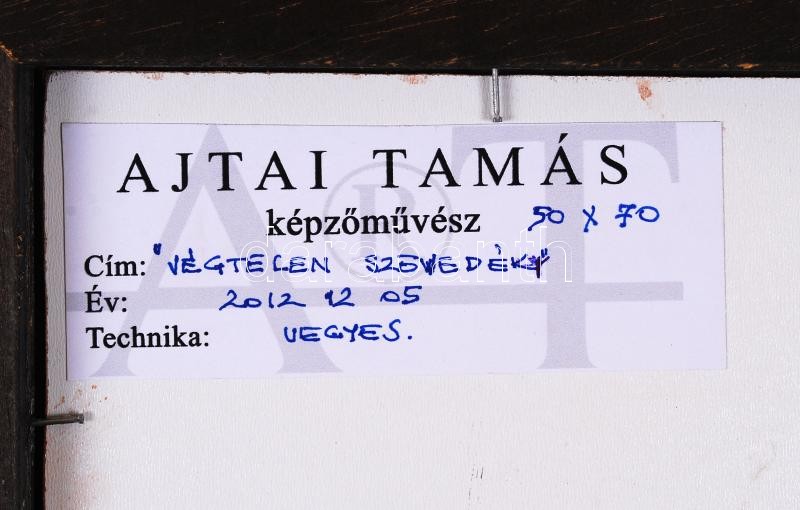 AJTAI TAMÁS
képzőművész 50 X 70
Cím: "VÉGTELEN SZEVEDÉKY"
Év: 2012 12 05
Technika: VEGYES.
darabanth